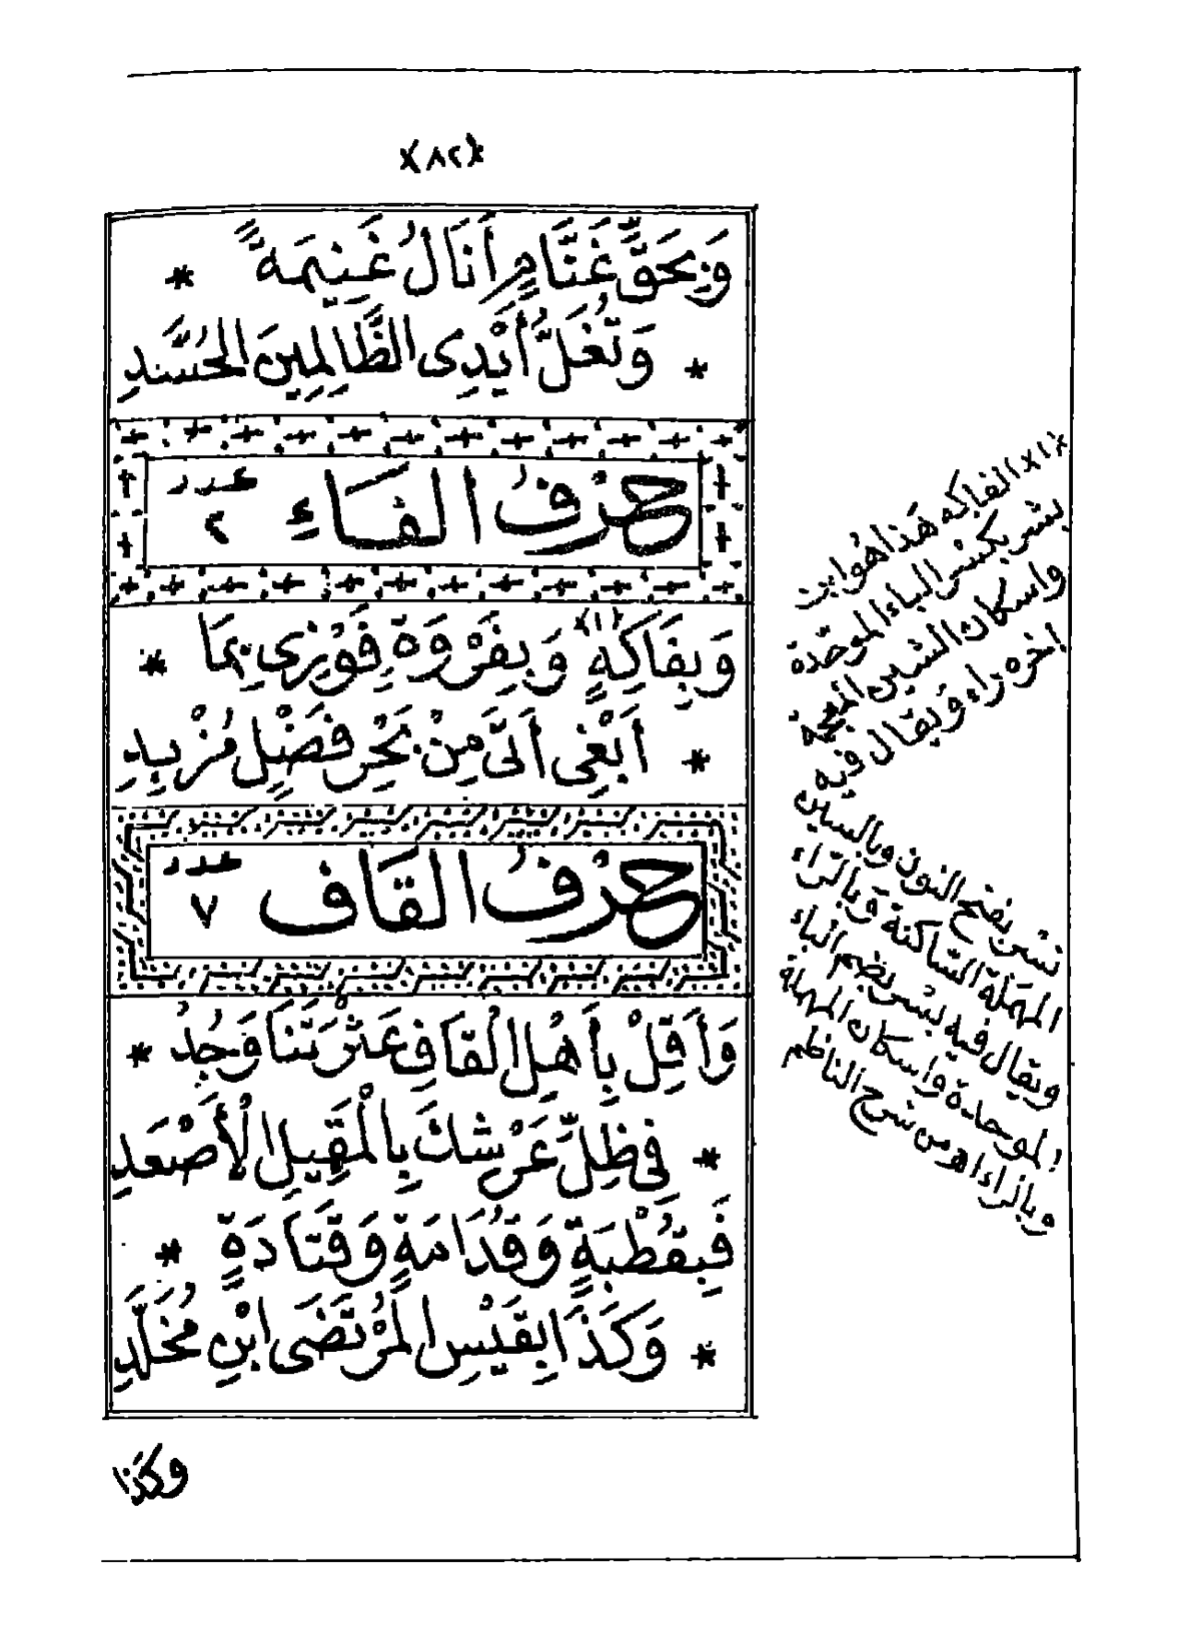 (٨٢)
وَبِحَقِّ غَنَّامٍ أَنَالُ غَنِيمَةً *
* وَتُغَلُّ أَيْدِى الظَّالِمِينَ الْحُسَّدِ
حَرْفُ الْفَاءِ عدد ٢
وَبِفَاكِهٍ (١) وَبِفَرْوَةٍ فَوْزِى بِمَا *
* أَبْغِى أَتَى مِنْ بَحْرِ فَضْلٍ مُزْبِدِ
حَرْفُ الْقَاف عدد ٧
وَأَقِلْ بِأَهْلِ الْقَافِ عَثْرَتَنَا وَجُدْ *
* فِى ظِلِّ عَرْشِكَ بِالْمَقِيلِ الْأَصْعَدِ
فَبِقُطْبَةٍ وَقُدَامَةٍ وَقَتَادَةٍ *
* وَكَذَا بِقَيْسِ الْمُرْتَضَى ابْنِ مُخَلَّدِ
وكذا
(١) الفاكه هذا هو ابن
بشر بكسر الباء الموحدة
واسكان الشين المعجمة
اخره راء ويقال فيه
نسر بفتح النون وبالسين
المهملة الساكنة وبالراء
ويقال فيه بسر بضم الباء
الموحدة واسكان المهملة
وبالراء اه من شرح الناظم